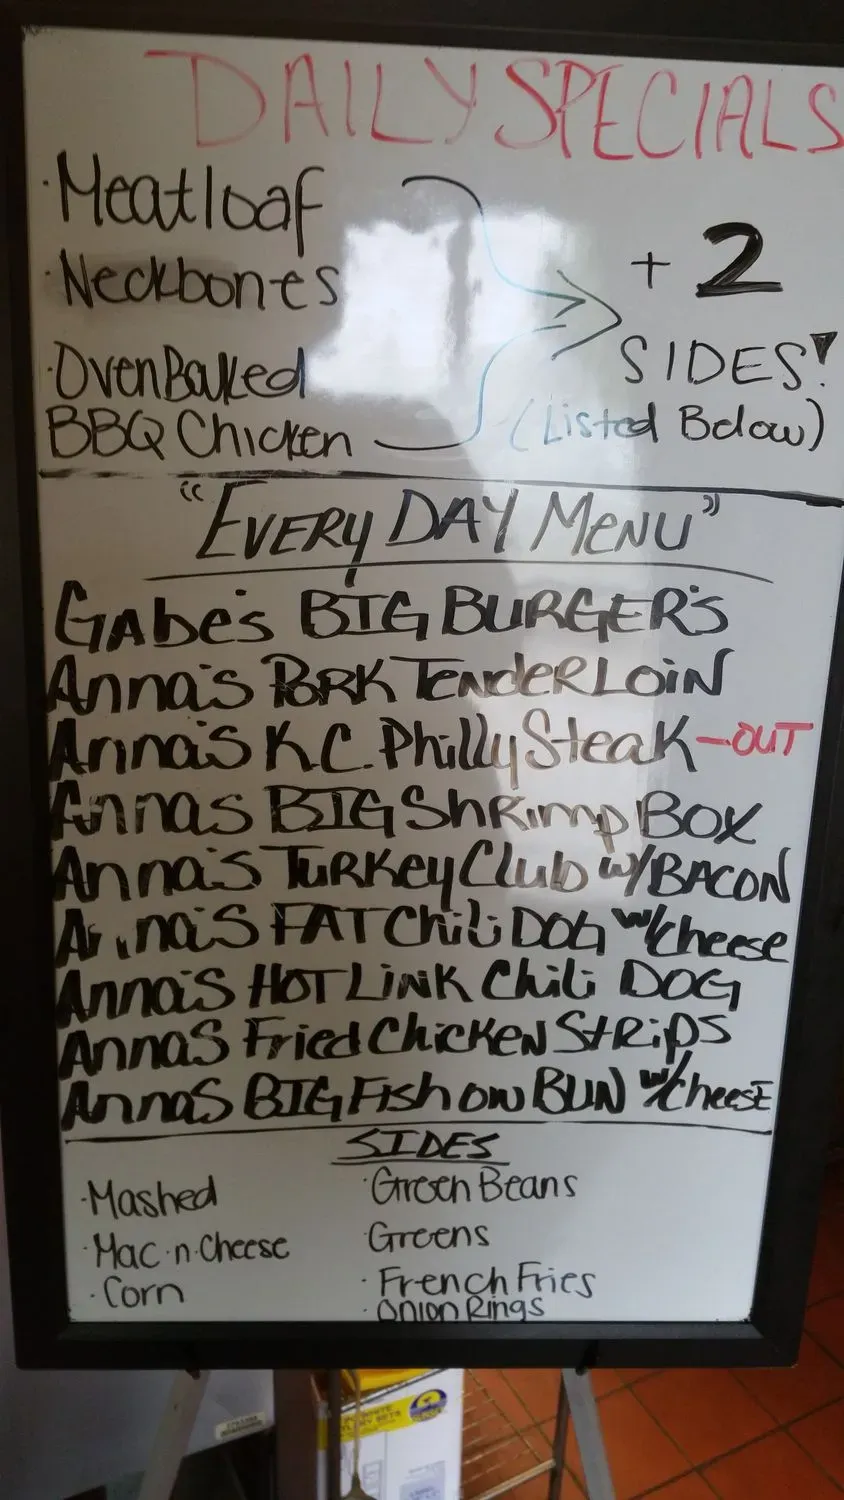 DAILY SPECIALS
·Meatloaf
·Neckbones
·Oven Baked
BBQ Chicken
+ 2
SIDES!
(Listed Below)
"EVERY DAY MENU"
GAbe's BIG BURGER'S
Anna's PORK TENDERLOIN
Anna's K.C. Philly Steak -OUT
Annas BIG Shrimp BOX
Anna's TURKey Club w/BACON
Anna's FAT Chili DOG w/cheese
Anna's HOT LINK Chili DOG
AnnaS Fried ChicKEN STRipS
AnnaS BIG Fish on BUN w/cheesE
SIDES
·Mashed
·Mac·n·Cheese
·Corn
·Green Beans
·Greens
·French Fries
·Onion Rings